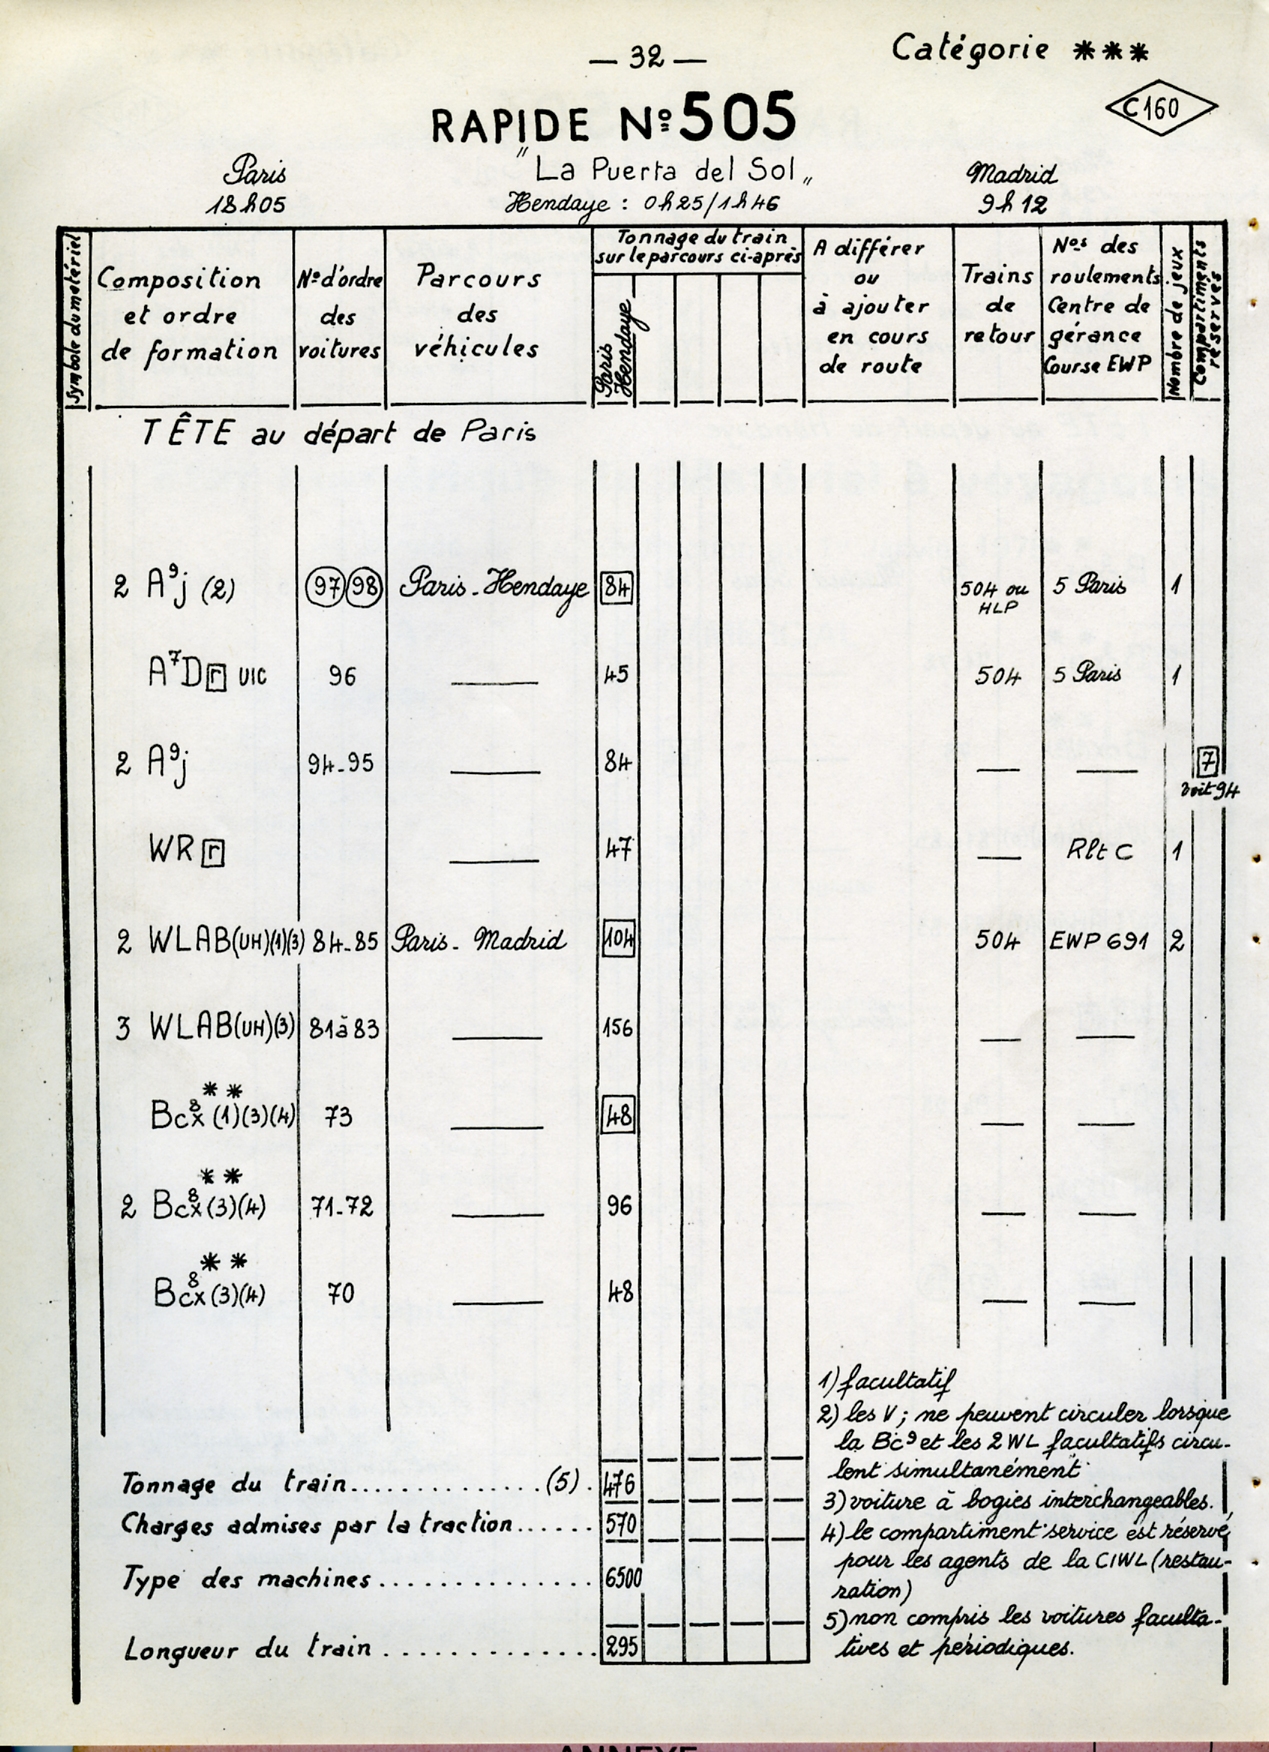 — 32 —
Catégorie ***
C160
RAPIDE Nº 505
"La Puerta del Sol„
Paris
18h05
Hendaye : 0h25/1h46
Madrid
9h12
Symbole du matériel
Composition
et ordre
de formation
Nº d'ordre
des
voitures
Parcours
des
véhicules
Tonnage du train
sur le parcours ci-après
Paris
Hendaye
A différer
ou
à ajouter
en cours
de route
Trains
de
retour
Nºs des
roulements
Centre de
gérance
Course EWP
Nombre de jeux
Compartiments
réservés
TÊTE au départ de Paris
2 A⁹j (2) 97 98 Paris - Hendaye 84 504 ou 5 Paris 1
HLP
A⁷D r UIC 96 —— 45 504 5 Paris 1
2 A⁹j 94-95 —— 84 — —— 7
voit 94
WR r —— 47 — Rlt C 1
2 WLAB(UH)(1)(3) 84-85 Paris - Madrid 104 504 EWP 691 2
3 WLAB(UH)(3) 81à83 —— 156 — ——
**
Bc⁸x (1)(3)(4) 73 —— 48 — ——
**
2 Bc⁸x (3)(4) 71-72 —— 96 — ——
**
Bc⁸x (3)(4) 70 —— 48 — ——
Tonnage du train..............(5). 476
Charges admises par la traction...... 570
Type des machines................ 6500
Longueur du train .............. 295
1) facultatif
2) les V; ne peuvent circuler lorsque
la Bc⁹ et les 2 WL facultatifs circu-
lent simultanément
3) voiture à bogies interchangeables.
4) le compartiment service est réservé
pour les agents de la CIWL (restau-
ration)
5) non compris les voitures faculta-
tives et périodiques.
ANNEXE